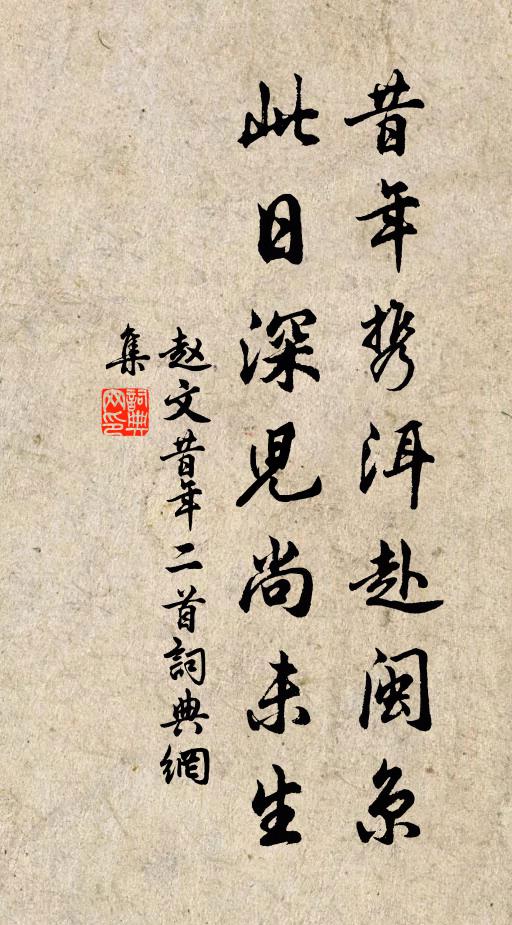 昔年携洱赴闽京
此日深児尚未生
赵文昔年二首詞典網
集
詞典網印